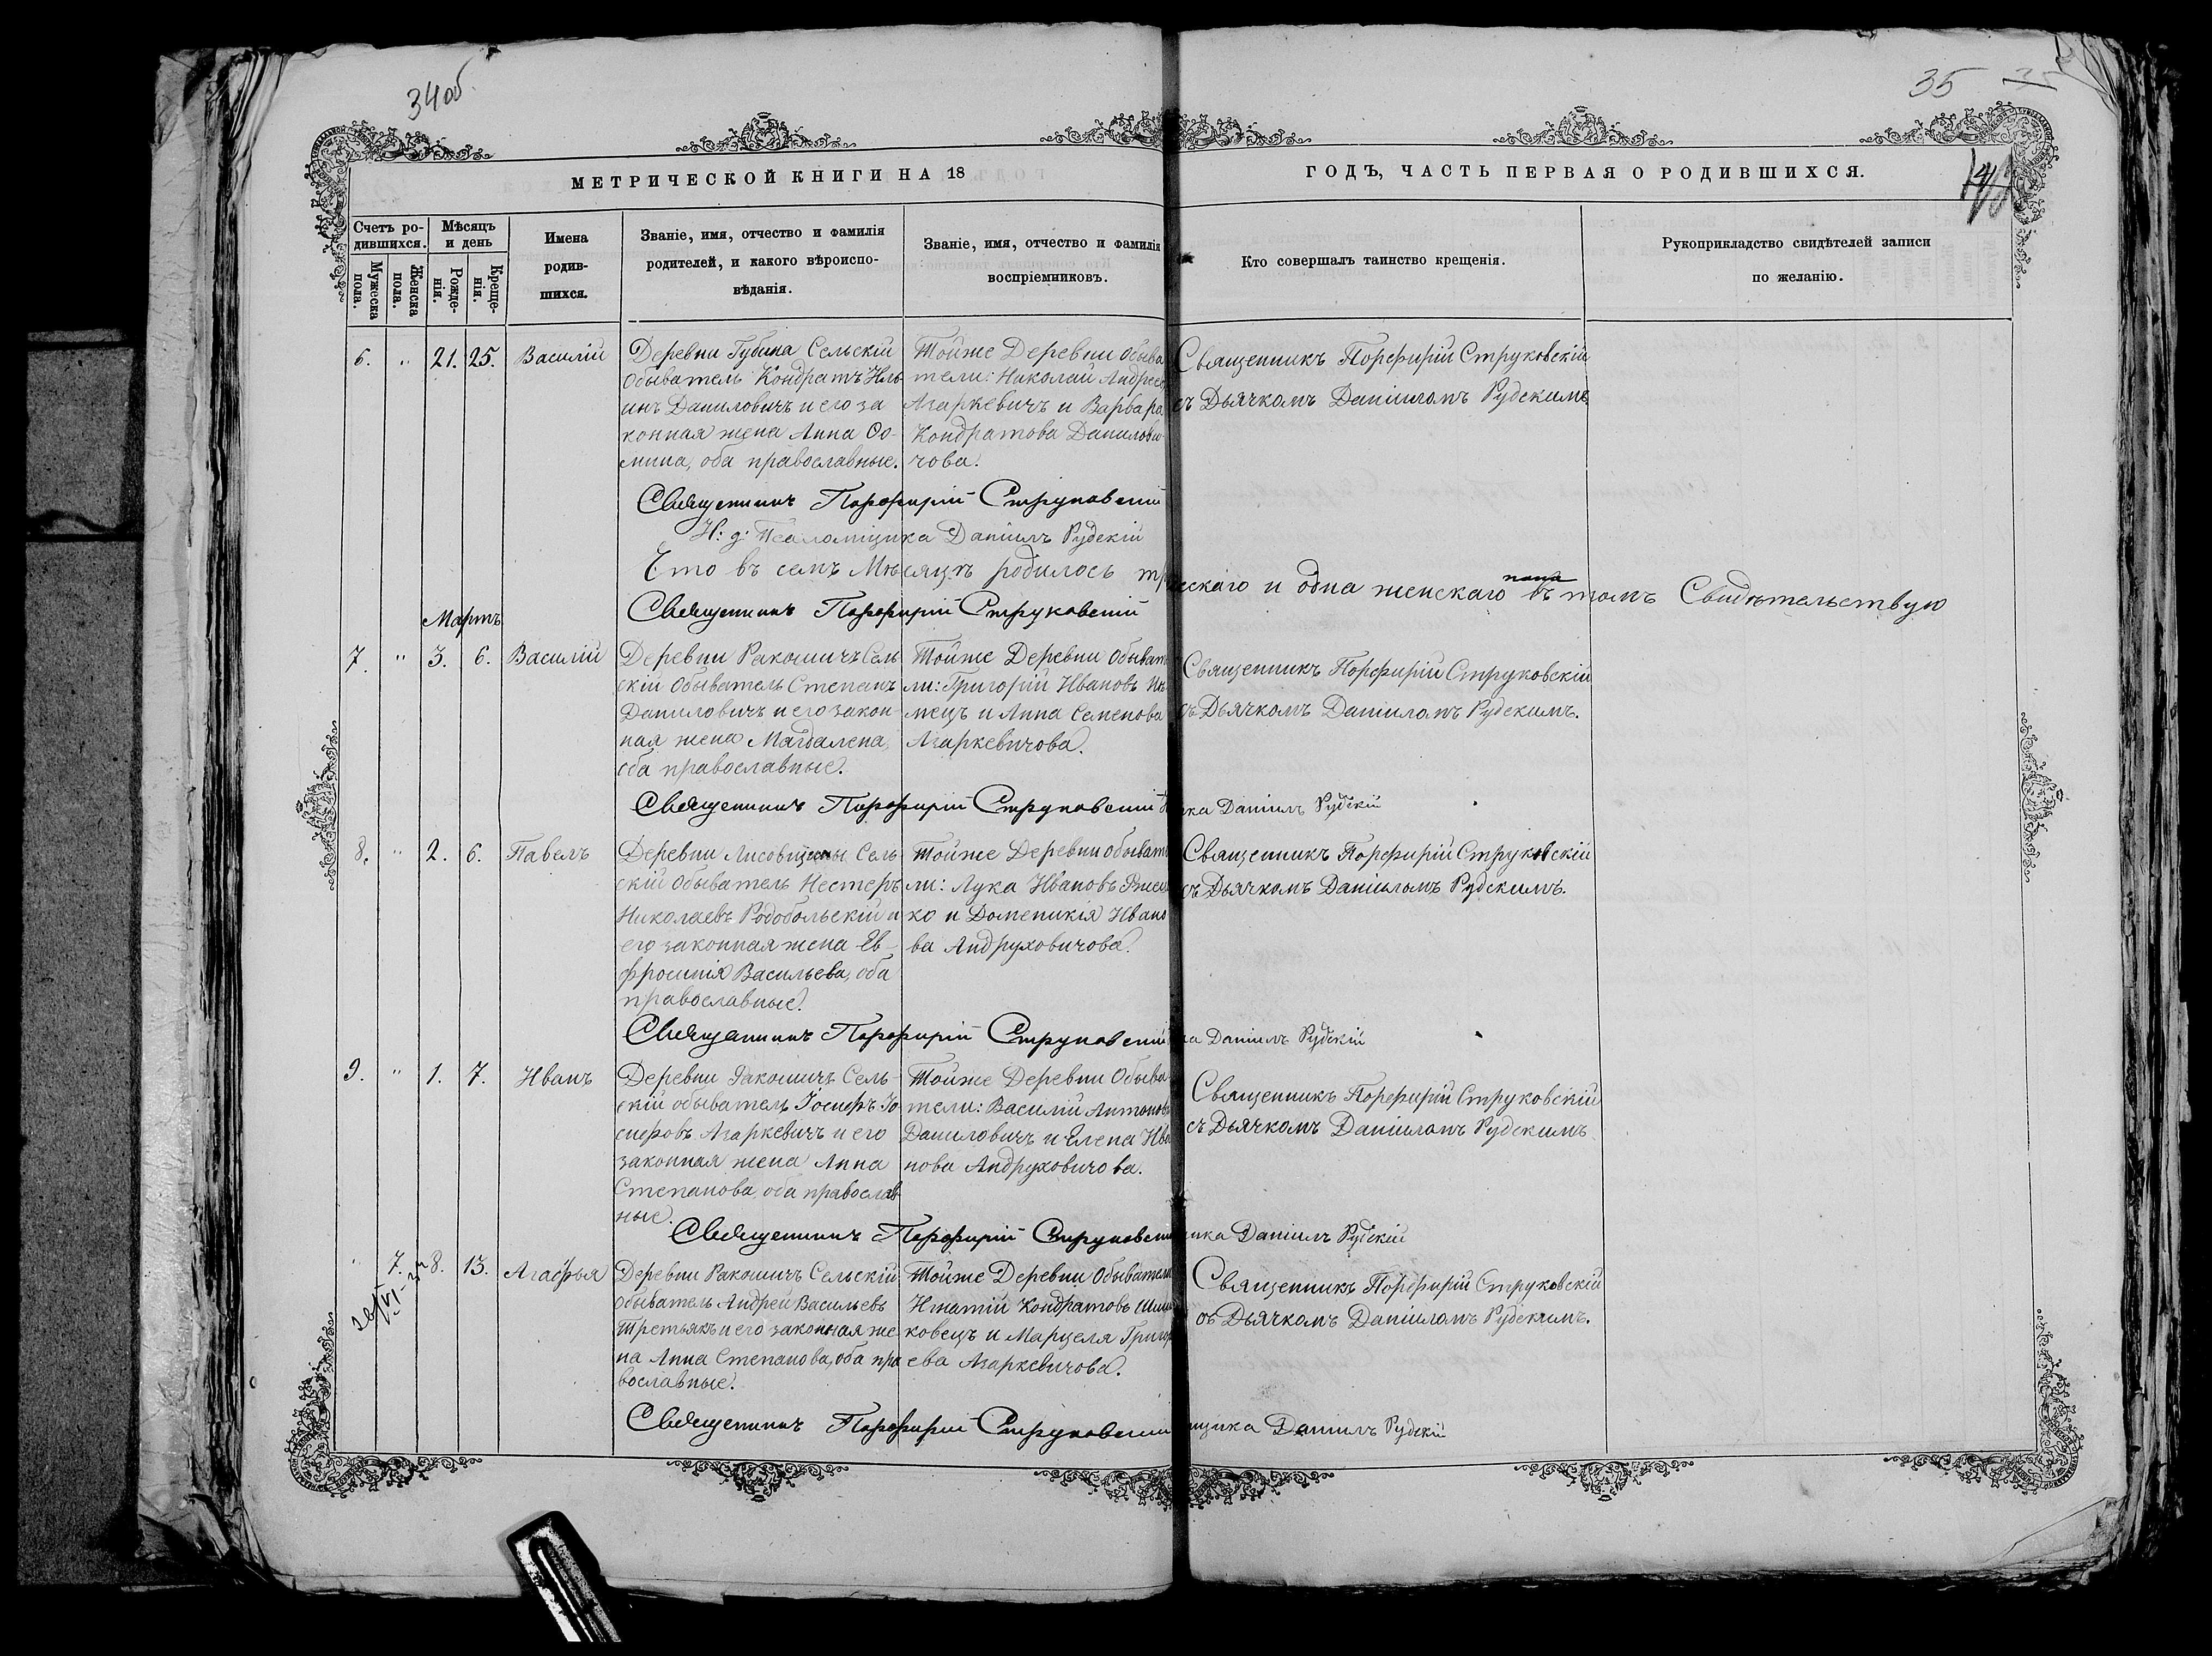 34 об
35
МЕТРИЧЕСКОЙ КНИГИ НА 18
ГОДЪ, ЧАСТЬ ПЕРВАЯ О РОДИВШИХСЯ.
Счетъ ро-
дившихся.
Мужеска
пола.
Женска
пола.
Мѣсяцъ
и день
Рожде-
нія.
Креще-
нія.
Имена
родив-
шихся.
Званіе, имя, отчество и фамилія
родителей, и какого вѣроиспо-
вѣданія.
Званіе, имя, отчество и фамилія
воспріемниковъ.
Кто совершалъ таинство крещенія.
Рукоприкладство свидѣтелей записи
по желанію.
6. " 21. 25. Василій
Деревни Губина Сельскій
Обыватель Кондратъ Иль
инъ Даниловичъ и его за
конная жена Анна Ѳо-
мина, оба православные.
Тойже Деревни Обыва
тели: Николай Андреев
Азаркевичъ и Варвара
Кондратова Данилови
чова.
Священникъ Порфирій Струковскій
съ Дьячкомъ Даніиломъ Рудскимъ
Священникъ Порфирій Струковскій
И: д: Псаломщика Даніилъ Рудскій
Что въ семъ Мѣсяцѣ родилось
ескаго и одна женскаго пола въ томъ Свидѣтельствую
Священникъ Порфирій Струковскій
Мартъ
7. " 3. 6. Василій
Деревни Ракошичъ Сель
скій Обыватель Степанъ
Даниловичъ и его закон
ная жена Магдалена,
оба православные.
Тойже Деревни Обыват
ли: Григорій Ивановъ
мецъ и Анна Семенова
Азаркевичова.
Священникъ Порфирій Струковскій
съ Дьячкомъ Даніиломъ Рудскимъ.
Священникъ Порфирій Струковскій
ка Даніилъ Рудскій
8. " 2. 6. Павелъ
Деревни Лисовщины Сель
скій Обыватель Нестеръ
Николаевъ Родобольскій и
его законная жена Ев-
фросинія Васильева, оба
православные.
Тойже Деревни Обыват
ли: Лука Ивановъ
ко и Доменикія Ивано
ва Андруховичова.
Священникъ Порфирій Струковскій
съ Дьячкомъ Даніиломъ Рудскимъ.
Священникъ Порфирій Струковскій
ка Даніилъ Рудскій
9. " 1. 7. Иванъ
Деревни Ракошичъ Сель-
скій обыватель Іосифъ Іо
сифовъ Азаркевичъ и его
законная жена Анна
Степанова, оба православ
ные.
Тойже Деревни Обыва
тели: Василій Антонов
Даниловичъ и Елена Ива
нова Андруховичова.
Священникъ Порфирій Струковскій
съ Дьячкомъ Даніиломъ Рудскимъ
Священникъ Порфирій Струковскій
щика Даніилъ Рудскій
" 7. 8. 13. Агафья
Деревни Ракошичъ Сельскій
Обыватель Андрей Васильевъ
Третьякъ и его законная же
на Анна Степанова, оба пра
вославные.
Тойже Деревни Обыватели
Игнатій Кондратовъ
ковецъ и Марцеля Григор
ева Азаркевичова.
Священникъ Порфирій Струковскій
съ Дьячкомъ Даніиломъ Рудскимъ.
Священникъ Порфирій Струковскій
мщика Даніилъ Рудскій